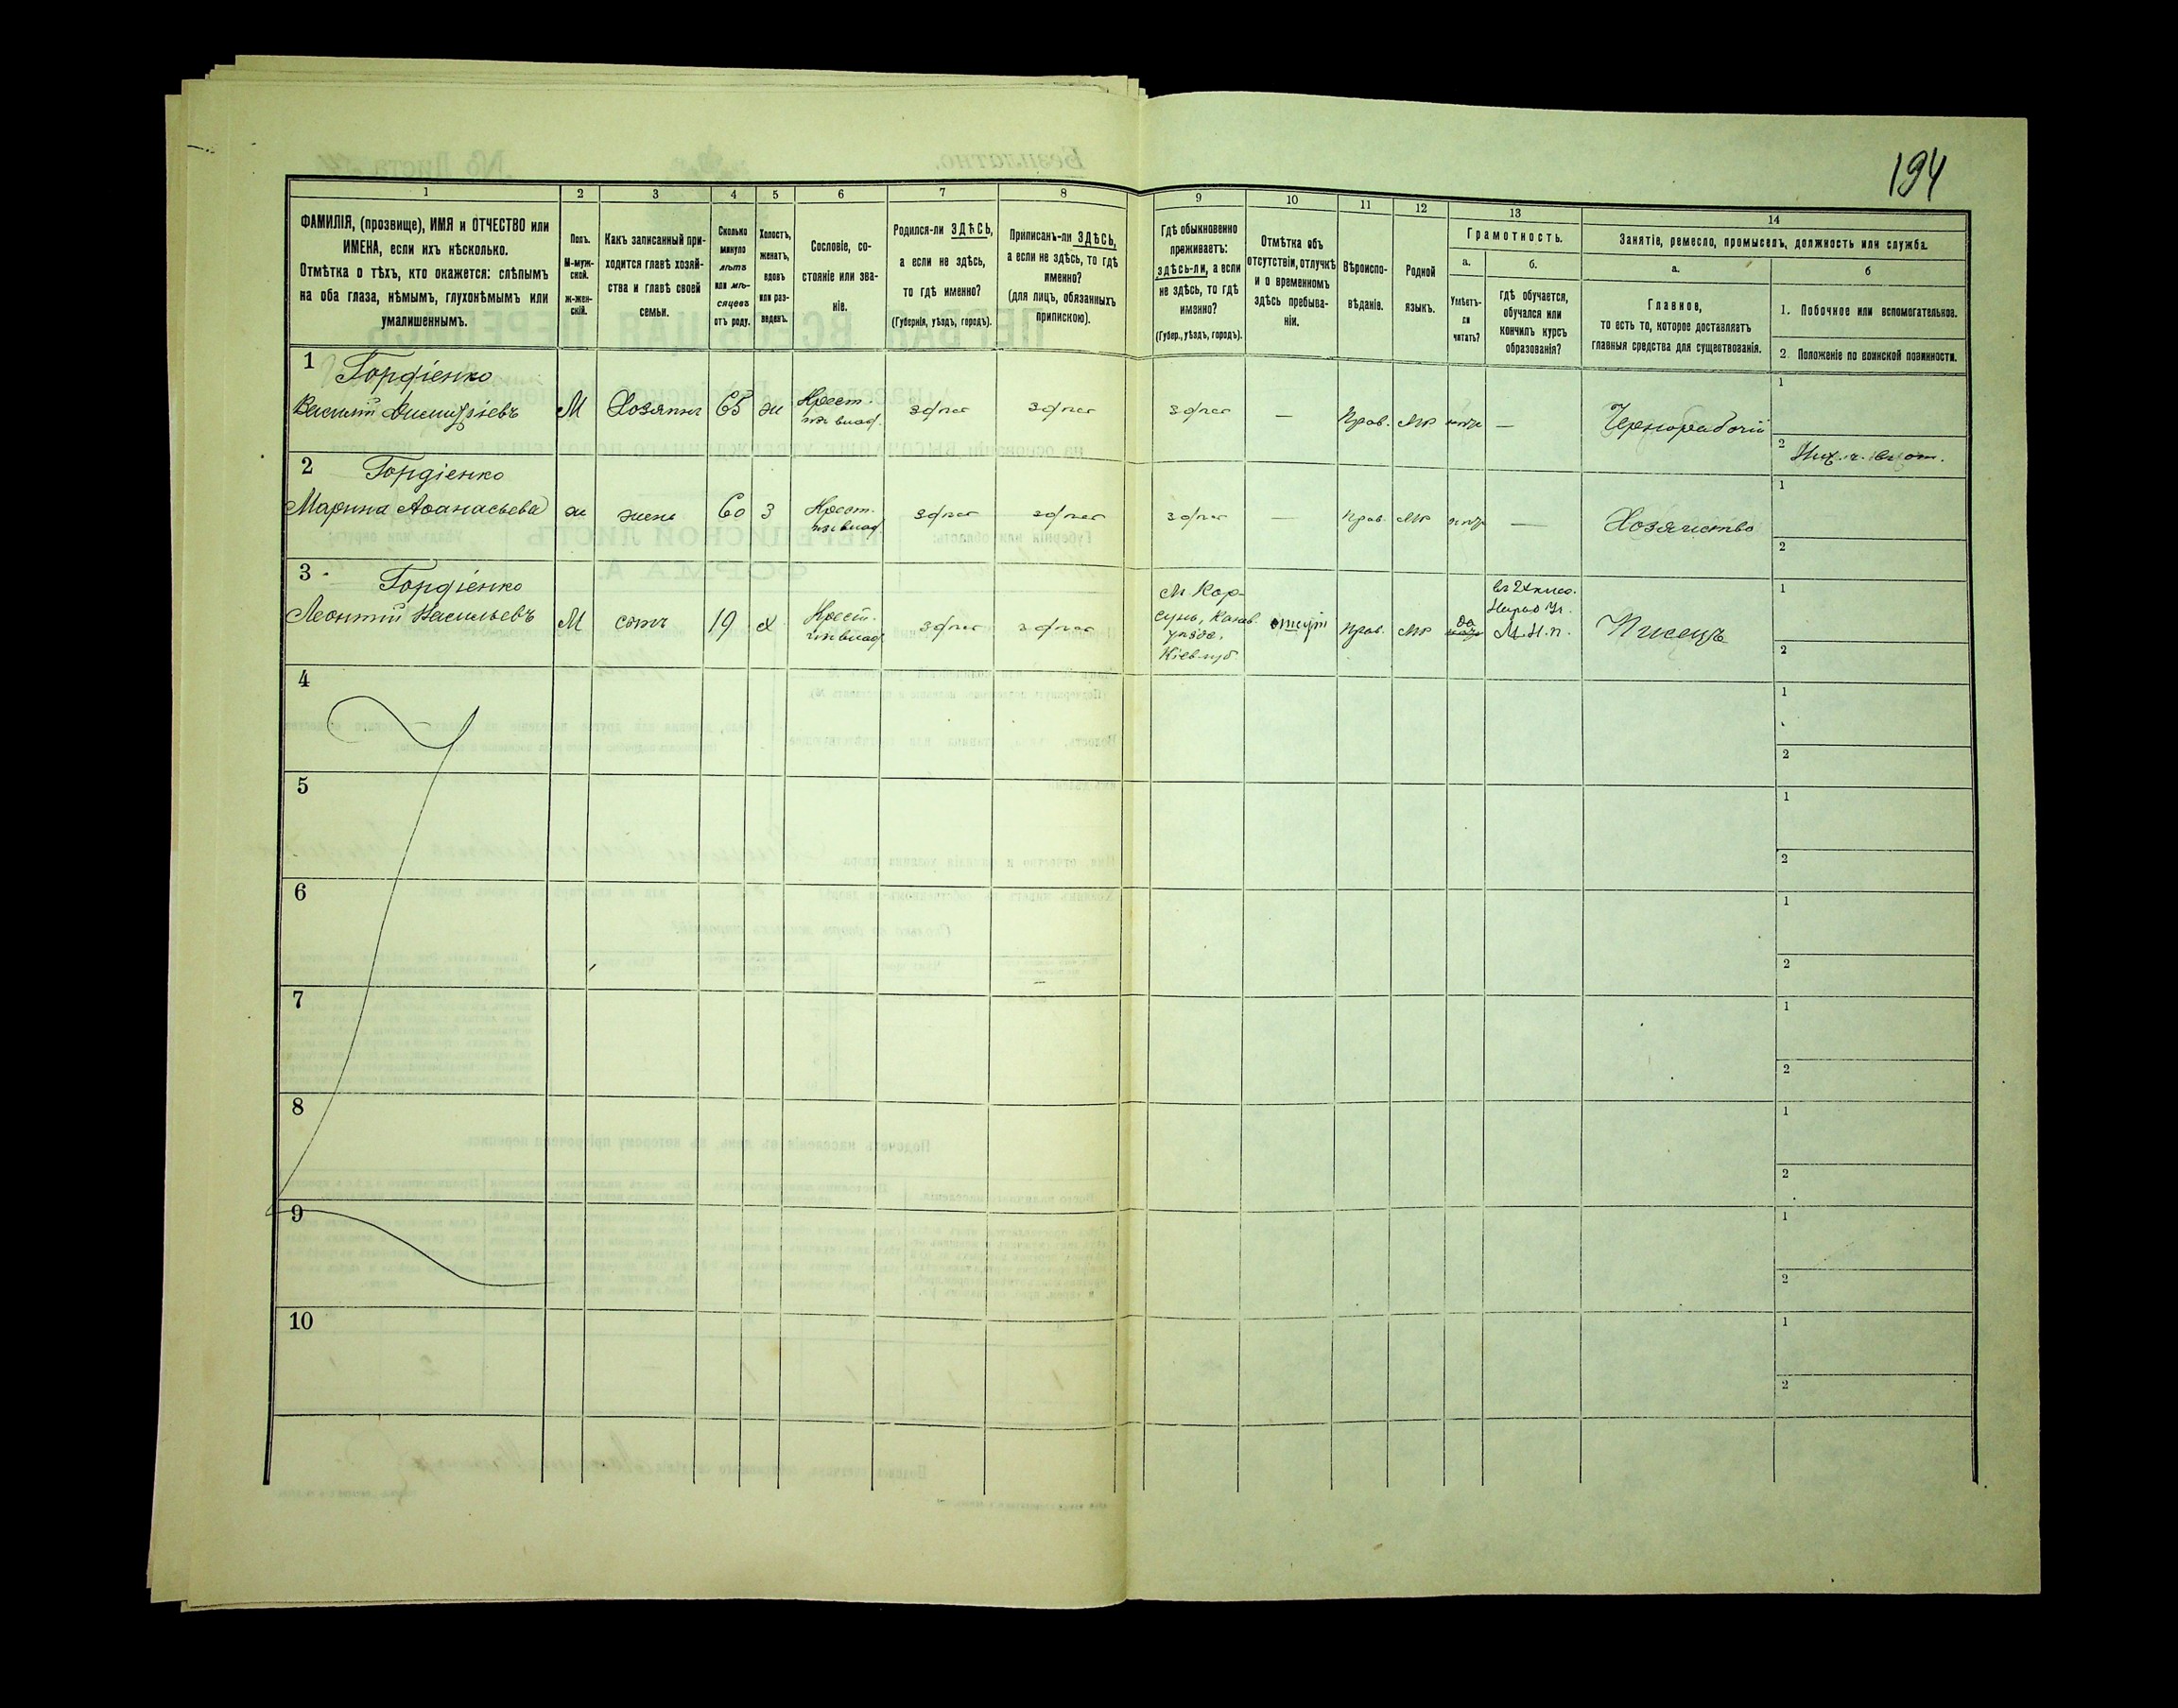 194
1
2
3
4
5
6
7
8
9
10
11
12
13
14
ФАМИЛІЯ, (прозвище), ИМЯ и ОТЧЕСТВО или
ИМЕНА, если ихъ нѣсколько.
Отмѣтка о тѣхъ, кто окажется: слѣпымъ
на оба глаза, нѣмымъ, глухонѣмымъ или
умалишеннымъ.
Полъ.
М-муж-
ской.
ж-жен-
скій.
Какъ записанный при-
ходится главѣ хозяй-
ства и главѣ своей
семьи.
Сколько
минуло
лѣтъ
или мѣ-
сяцевъ
отъ роду.
Холостъ,
женатъ,
вдовъ
или раз-
веденъ.
Сословіе, со-
стояніе или зва-
ніе.
Родился-ли ЗДѢСЬ,
а если не здѣсь,
то гдѣ именно?
(Губернія, уѣздъ, городъ).
Приписанъ-ли ЗДѢСЬ,
а если не здѣсь, то гдѣ
именно?
(для лицъ, обязанныхъ
припискою).
Гдѣ обыкновенно
проживаетъ:
здѣсь-ли, а если
не здѣсь, то гдѣ
именно?
(Губер., уѣздъ, городъ).
Отмѣтка объ
отсутствіи, отлучкѣ
и о временномъ
здѣсь пребыва-
ніи.
Вѣроиспо-
вѣданіе.
Родной
языкъ.
Грамотность.
а.
Умѣетъ-
ли
читать?
б.
гдѣ обучается,
обучался или
кончилъ курсъ
образованія?
Занятіе, ремесло, промыселъ, должность или служба.
а.
Главное,
то есть то, которое доставляетъ
главныя средства для существованія.
б
1. Побочное или вспомогательное.
2. Положеніе по воинской повинности.
1
Гордіенко
Василій Димитріевъ
М
Хозяинъ
65
ж
Крест.
изъ влад.
здѣсь
здѣсь
здѣсь
—
Прав.
Мр
нѣтъ
—
Чернорабочій
1
2
2
Гордіенко
Марина Аѳанасьева
ж
жена
60
З
Крест.
изъ влад.
здѣсь
здѣсь
здѣсь
—
Прав.
Мр
нѣтъ
—
Хозяйство
1
2
3
Гордіенко
Леонтій Васильевъ
М
сынъ
19
х
Крест.
изъ влад.
здѣсь
здѣсь
М. Кор-
сунь, Канев.
уѣзда,
Кіев. губ.
Прав.
Мр
да
М. Н. П.
Писецъ
1
2
4
1
2
5
1
2
6
1
2
7
1
2
8
1
2
9
1
2
10
1
2